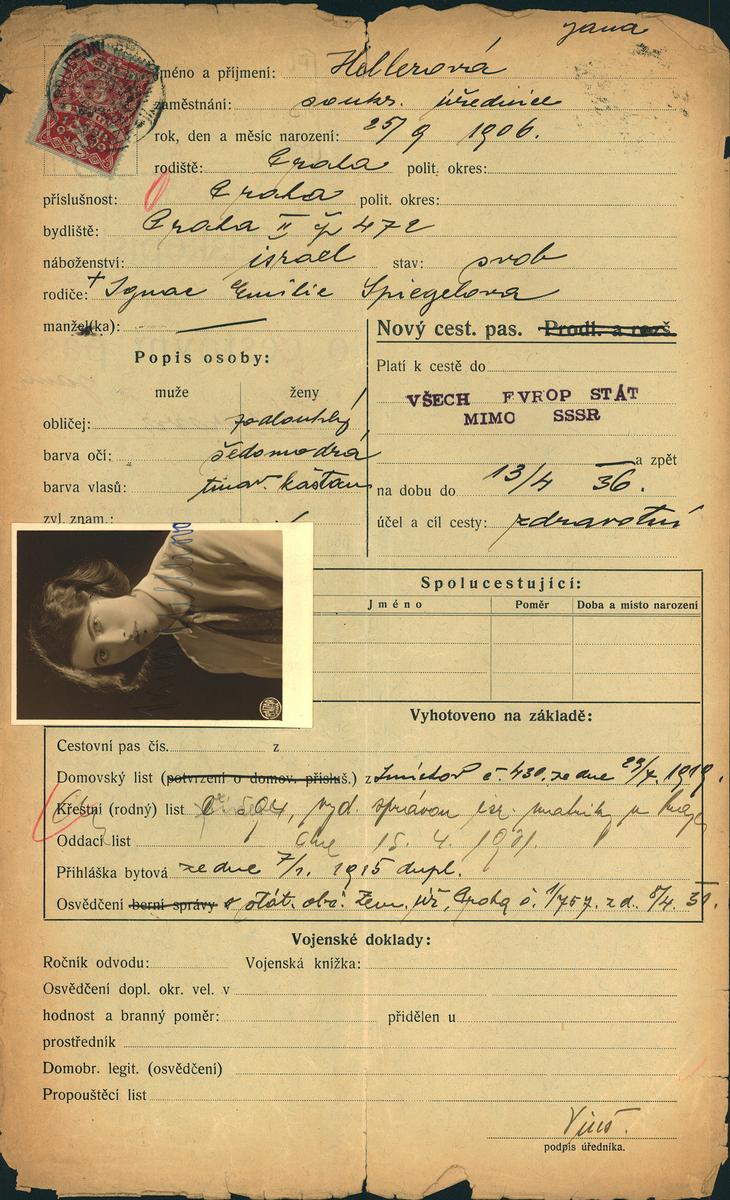 Jana
Jméno a příjmení: Hellerová
zaměstnání: soukr. úřednice
rok, den a měsíc narození: 25/9 1906.
rodiště: Praha polit. okres:
příslušnost: Praha polit. okres:
bydliště: Praha II čp 472
náboženství: israel stav: svob
rodiče: + Ignac Emilie Spiegelova
manžel(ka):
Nový cest. pas. Prodl. a rozš.
Popis osoby:
Platí k cestě do
muže ženy
VŠECH EVROP STÁT
MIMO SSSR
obličej: podlouhlý
barva očí: šedomodrá
a zpět
barva vlasů: tmav. kaštan
na dobu do 13/4 36.
zvl. znam.:
účel a cíl cesty: zdravotní
Spolucestující:
Jméno Poměr Doba a místo narození
Vyhotoveno na základě:
Cestovní pas čís. z
Domovský list (potvrzení o domov. přísluš.) z Smíchov č. 430, ze dne 29/7. 1919.
Křestní (rodný) list vyd. správou isr. matriky v Praze
Oddací list dne 15. 4. 1931.
Přihláška bytová ze dne 7/1. 1915 dupl.
Osvědčení berní správy o stát. obč. Zem. úř. Praha č. 1/757. z d. 8/4. 31.
Vojenské doklady:
Ročník odvodu: Vojenská knížka:
Osvědčení dopl. okr. vel. v
hodnost a branný poměr: přidělen u
prostředník
Domobr. legit. (osvědčení)
Propouštěcí list
podpis úředníka.